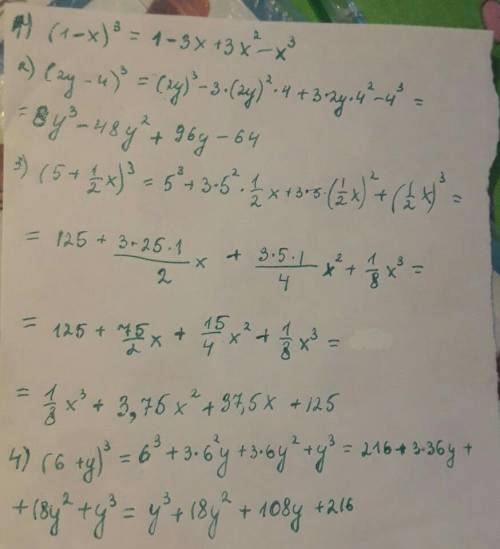 1) (1-x)³ = 1-3x+3x²-x³
2) (2y-4)³ = (2y)³-3·(2y)²·4+3·2y·4²-4³ =
= 8y³-48y²+96y-64
3) (5+1/2x)³ = 5³+3·5²·1/2x+3·5·(1/2x)²+(1/2x)³ =
= 125 + 3·25·1/2 x + 3·5·1/4 x² + 1/8x³ =
= 125 + 75/2x + 15/4x² + 1/8x³ =
= 1/8x³ + 3,75x² + 37,5x + 125
4) (6+y)³ = 6³+3·6²y+3·6y²+y³ = 216+3·36y+
+18y²+y³ = y³+18y²+108y+216